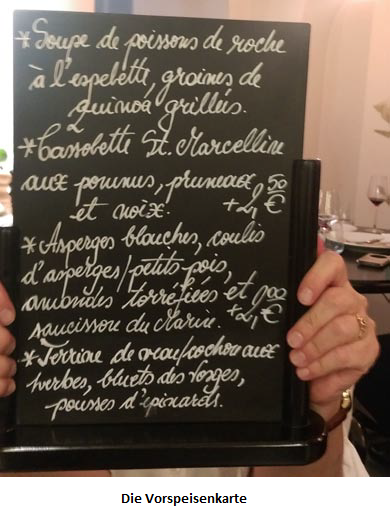 *Soupe de poissons de roche
à l'espelette, graines de
quinoa grillées.
*Cassolette St. Marcelline
aux pommes, pruneaux
et noix. +2,50 €
*Asperges blanches, coulis
d'asperges/petits-pois,
amandes torréfiées et
saucisson du Marin. +2,00 €
*Terrine de veau/cochon aux
herbes, bluets des Vosges,
pousses d'épinards.
Die Vorspeisenkarte